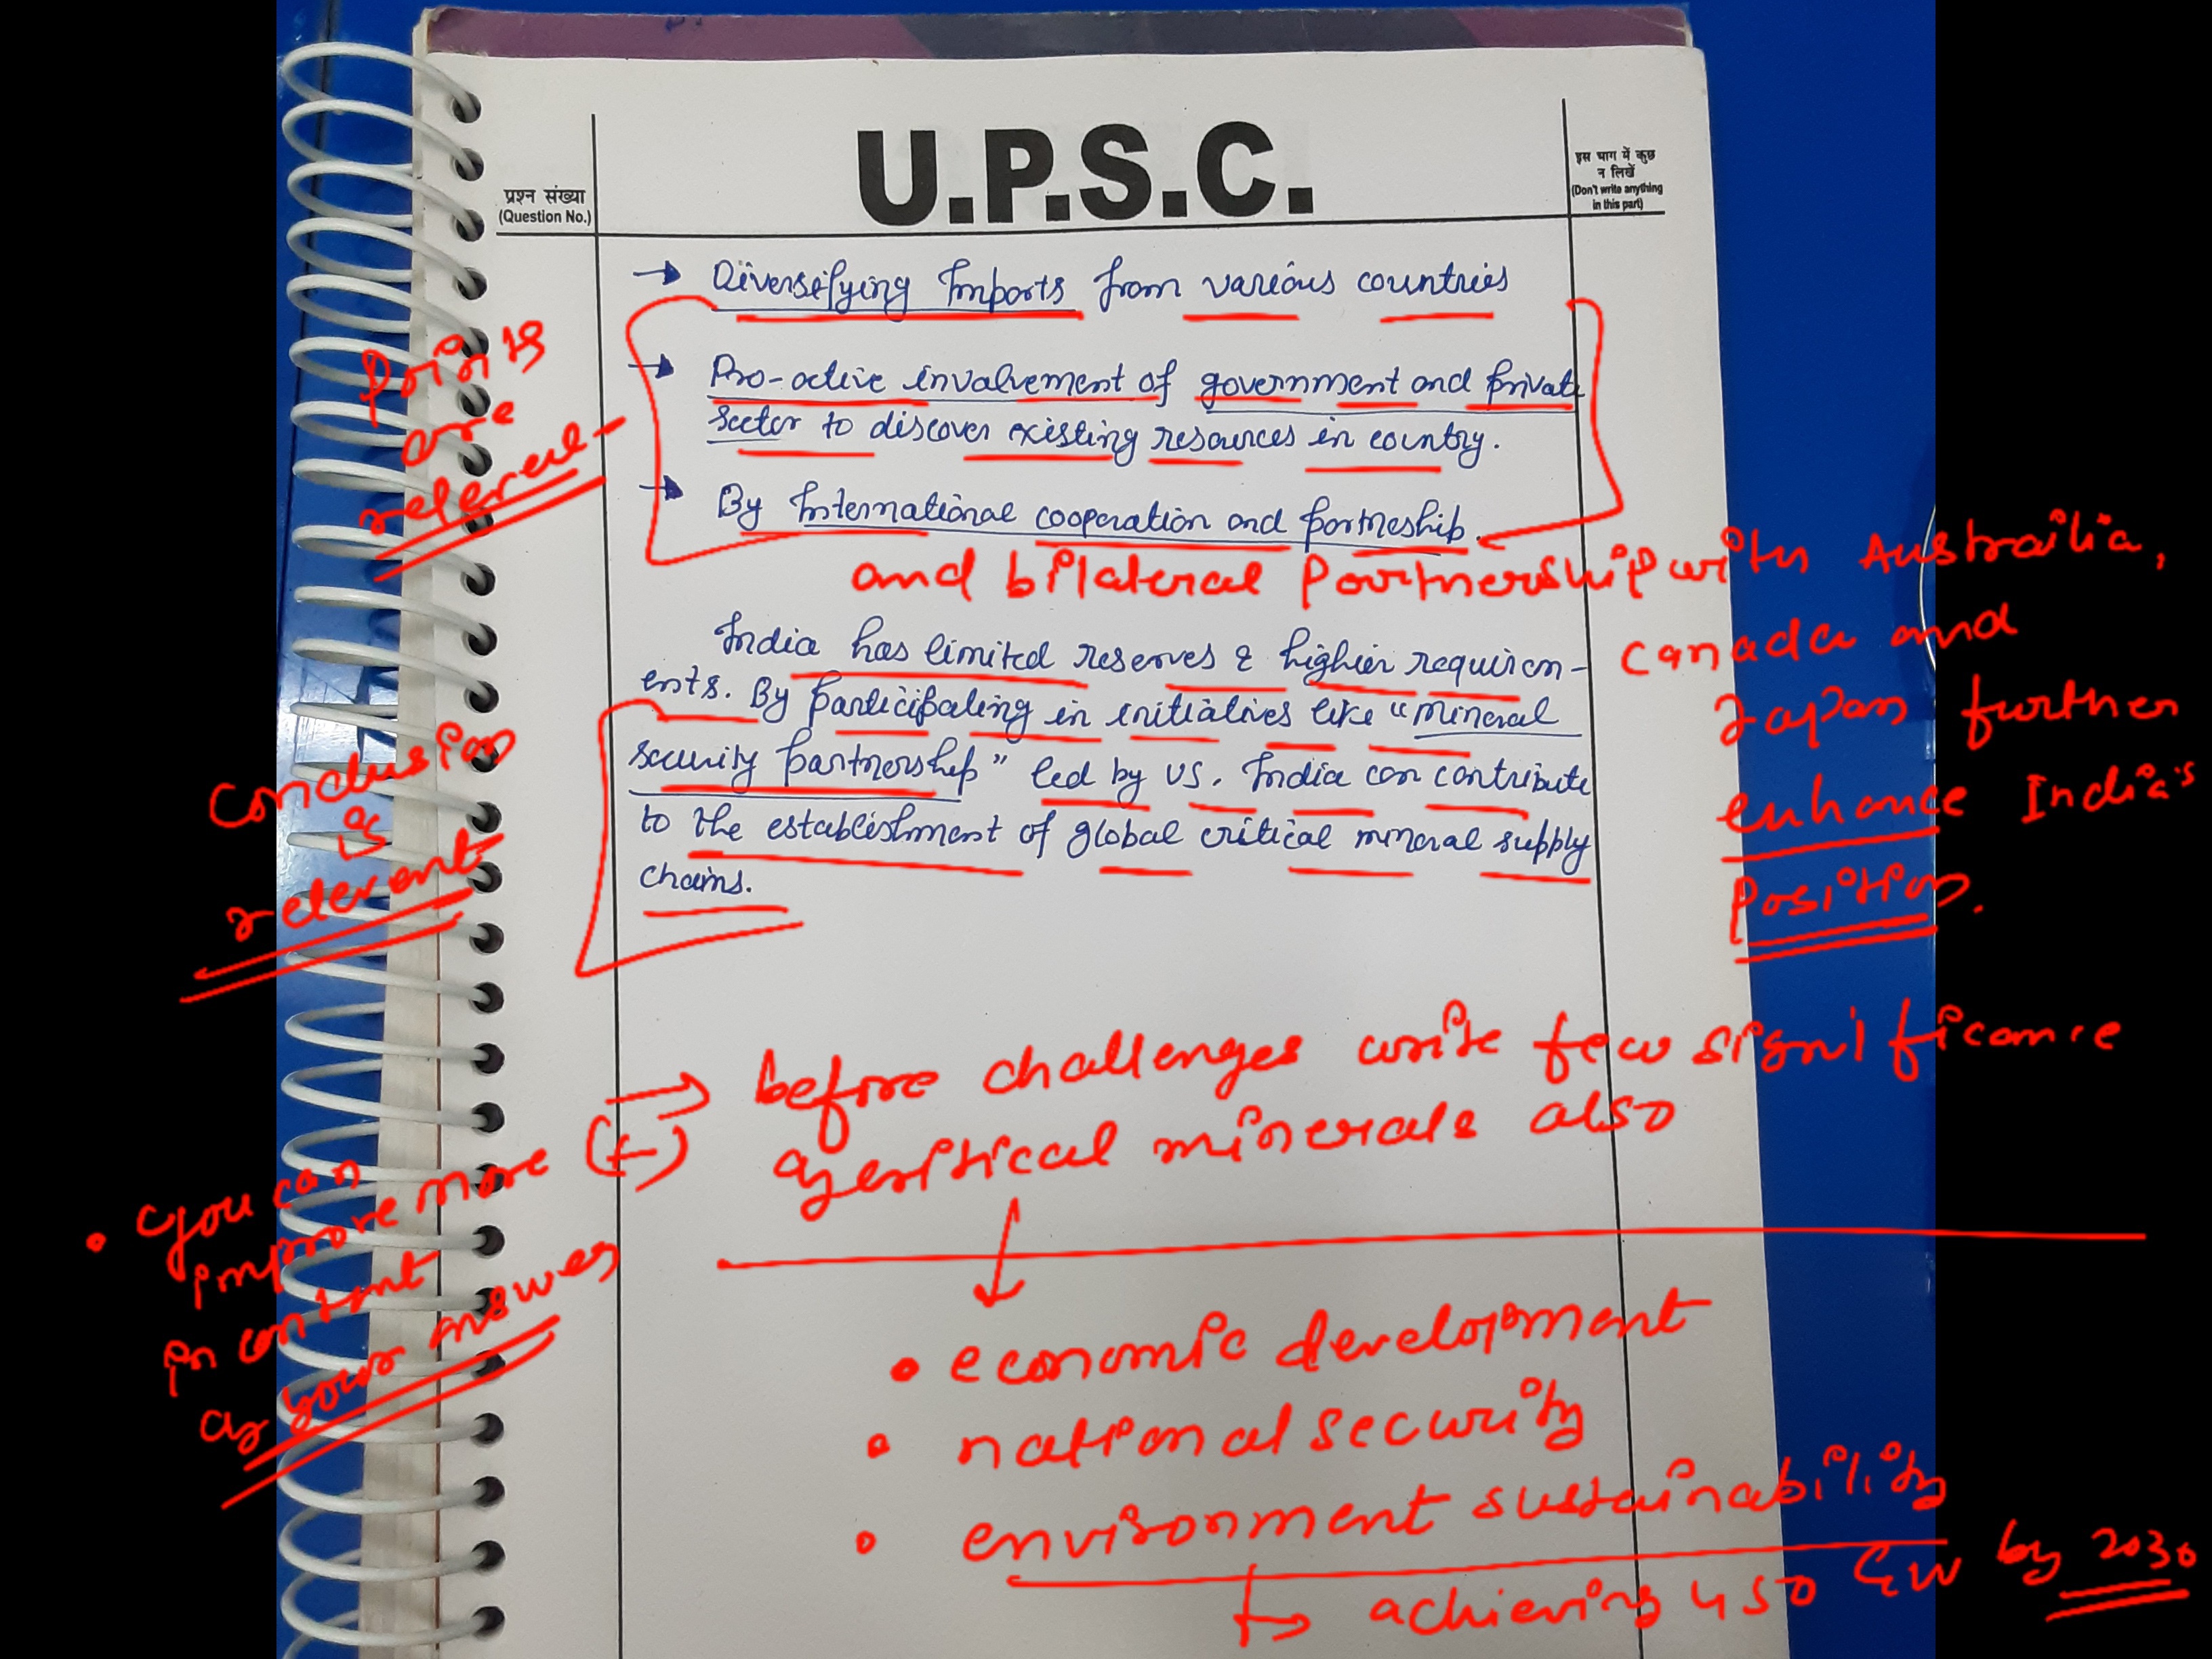 U.P.S.C.
प्रश्न संख्या
(Question No.)
इस भाग में कुछ
न लिखें
(Don't write anything
in this part)
→ Diversifying Imports from various countries
→ Pro-active involvement of government and private
sector to discover existing resources in country.
→ By International cooperation and partneship.
Points
are
relevent
and bilateral Partnership with Austrailia,
Canada and
Japan further
enhance India's
Position.
India has limited reserves & higher requirem-
ents. By participating in initiatives like "mineral
security partnership" led by US, India can contribute
to the establishment of global critical mineral supply
chains.
Conclusion
is
relevant
→ before challenges write few significance
of critical minerals also
• economic development
• national security
• environment sustainability
↳ achieving 450 GW by 2030
• you can
improve more (←)
in content
of your answer